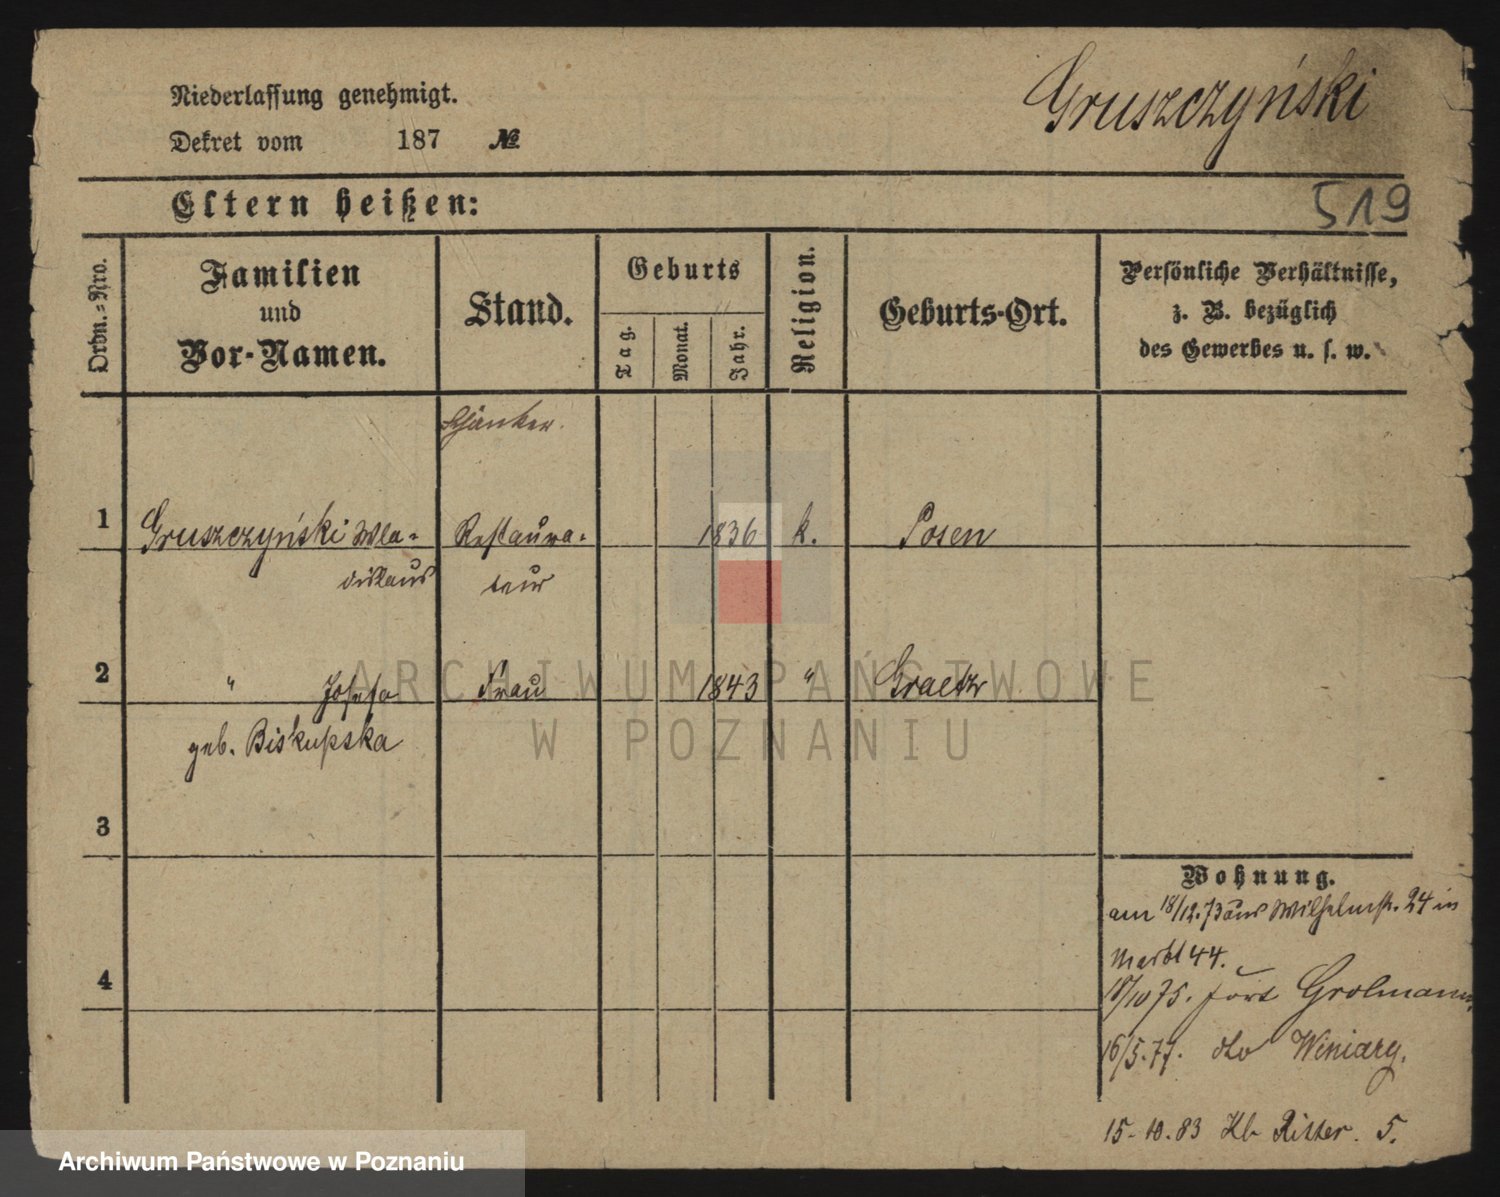 Niederlassung genehmigt.
Dekret vom 187 №
Gruszczyński
Eltern heißen:
519
Ordn.=Nro.
Familien
und
Vor-Namen.
Stand.
Geburts
Tag.
Monat.
Jahr.
Religion.
Geburts-Ort.
Persönliche Verhältnisse,
z. B. bezüglich
des Gewerbes u. s. w.
Schänker.
1 Gruszczyński Wla- Restaura- 1836 k. Posen
dislaus teur
2 " Josefa Frau 1843 " Graetz
geb. Biskupska
3
4
Wohnung.
am 18/12.73 aus Wilhelmstr. 24 in
Markt 44.
18/10 75. Fort Grolmann.
16/5.77. dto Winiary.
15-10.83 Kl. Ritter. 5.
ARCHIWUM PAŃSTWOWE
W POZNANIU
Archiwum Państwowe w Poznaniu